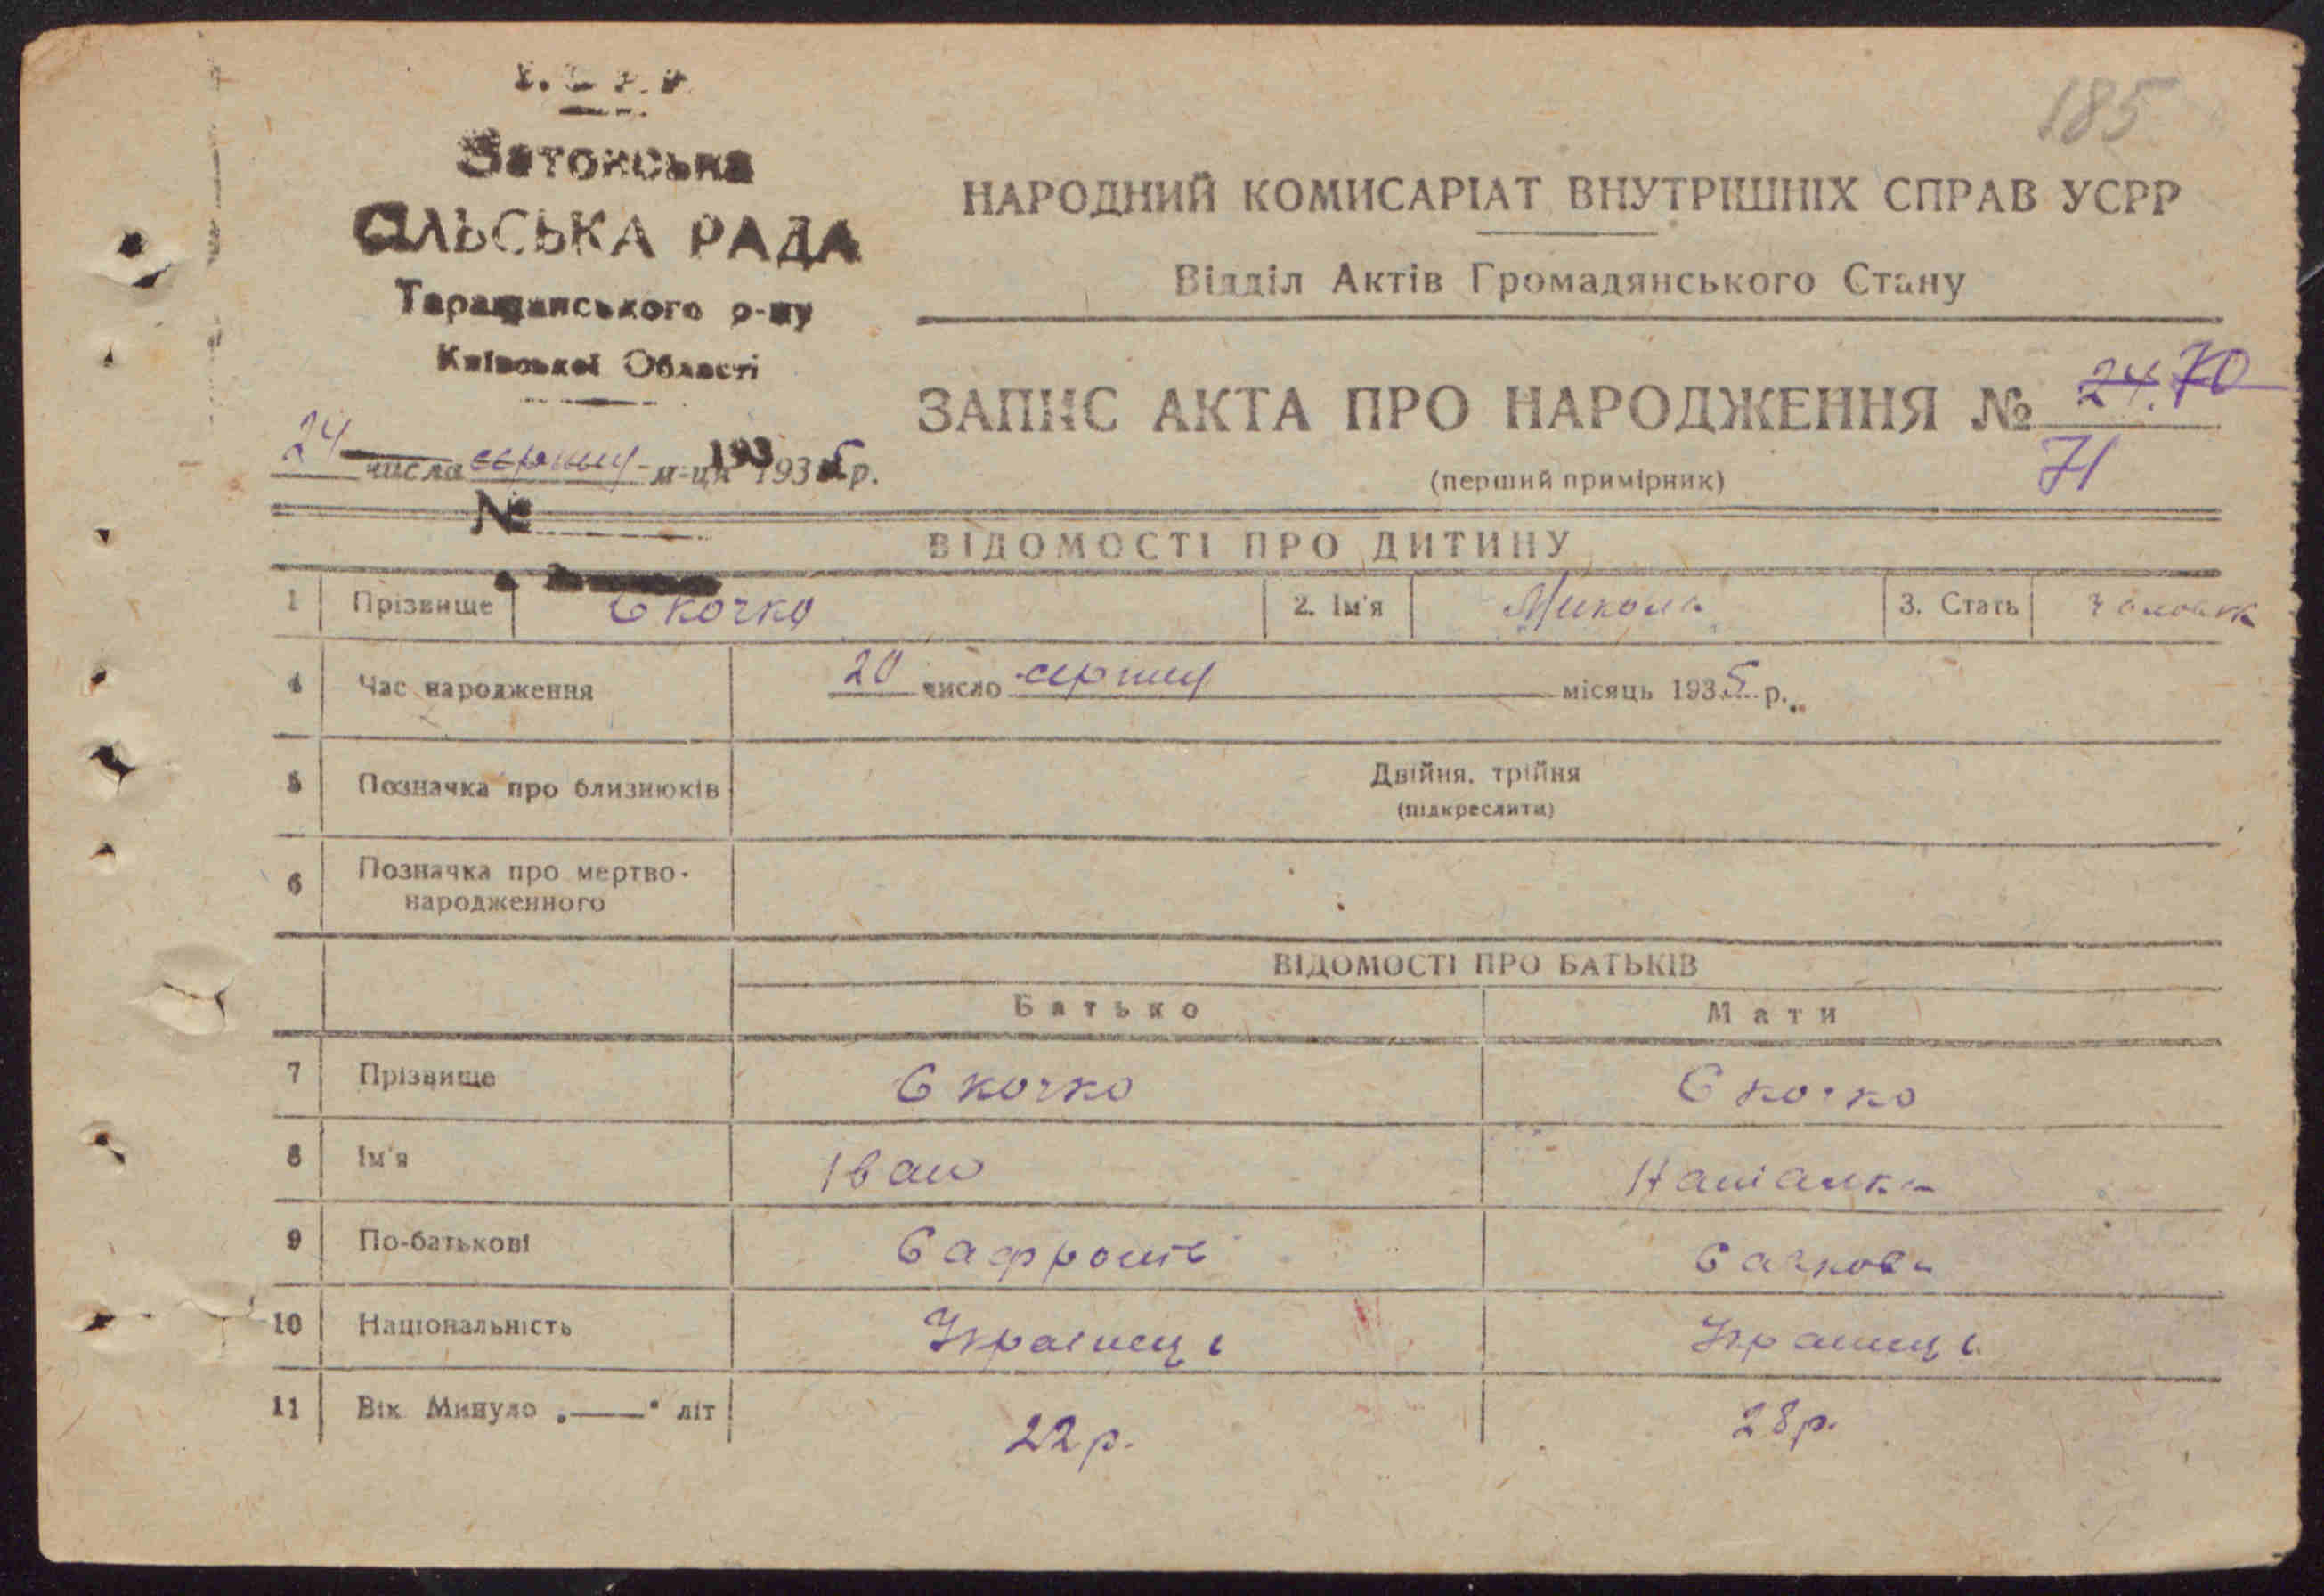 185
Затонська
СІЛЬСЬКА РАДА
Таращанського р-ну
Київської Області
НАРОДНИЙ КОМИСАРІАТ ВНУТРІШНІХ СПРАВ УСРР
Відділ Актів Громадянського Стану
ЗАПИС АКТА ПРО НАРОДЖЕННЯ № 24. 70
71
(перший примірник)
24 числа серпня м-ця 193 1935 р.
№
ВІДОМОСТІ ПРО ДИТИНУ
1 Прізвище Скочко 2. Ім'я Микола 3. Стать
4 Час народження 20 число серпня місяць 1935 р.
5 Позначка про близнюків Двійня, трійня
(підкреслити)
6 Позначка про мертво-
народженного
ВІДОМОСТІ ПРО БАТЬКІВ
Батько Мати
7 Прізвище Скочко Скочко
8 Ім'я Іван Наталка
9 По-батькові Сафронів
10 Національність Українец
11 Вік Минуло „—“ літ 22 р. 28 р.